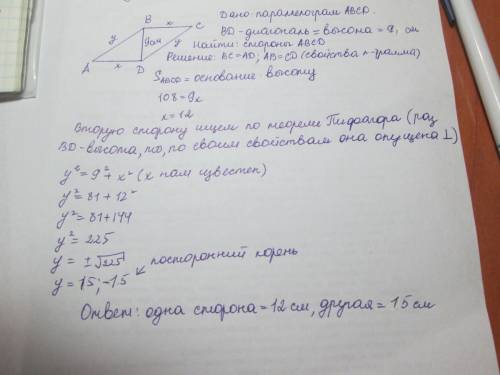 Дано: параллелограм ABCD.
BD - диагональ = высота = 9, см
Найти: стороны ABCD
Решение: BC=AD; AB=CD (свойства п-грамма)
B x C
y 9см y
A x D
S ABCD = основание · высоту
108 = 9x
x = 12
Вторую сторону ищем по теореме Пифагора (раз
BD - высота, то, по своим свойствам она опущена ⊥)
y² = 9² + x² (x нам известен)
y² = 81 + 12²
y² = 81 + 144
y² = 225
y = ±√225
посторонний корень
y = 15; -15
Ответ: одна сторона = 12 см, другая = 15 см